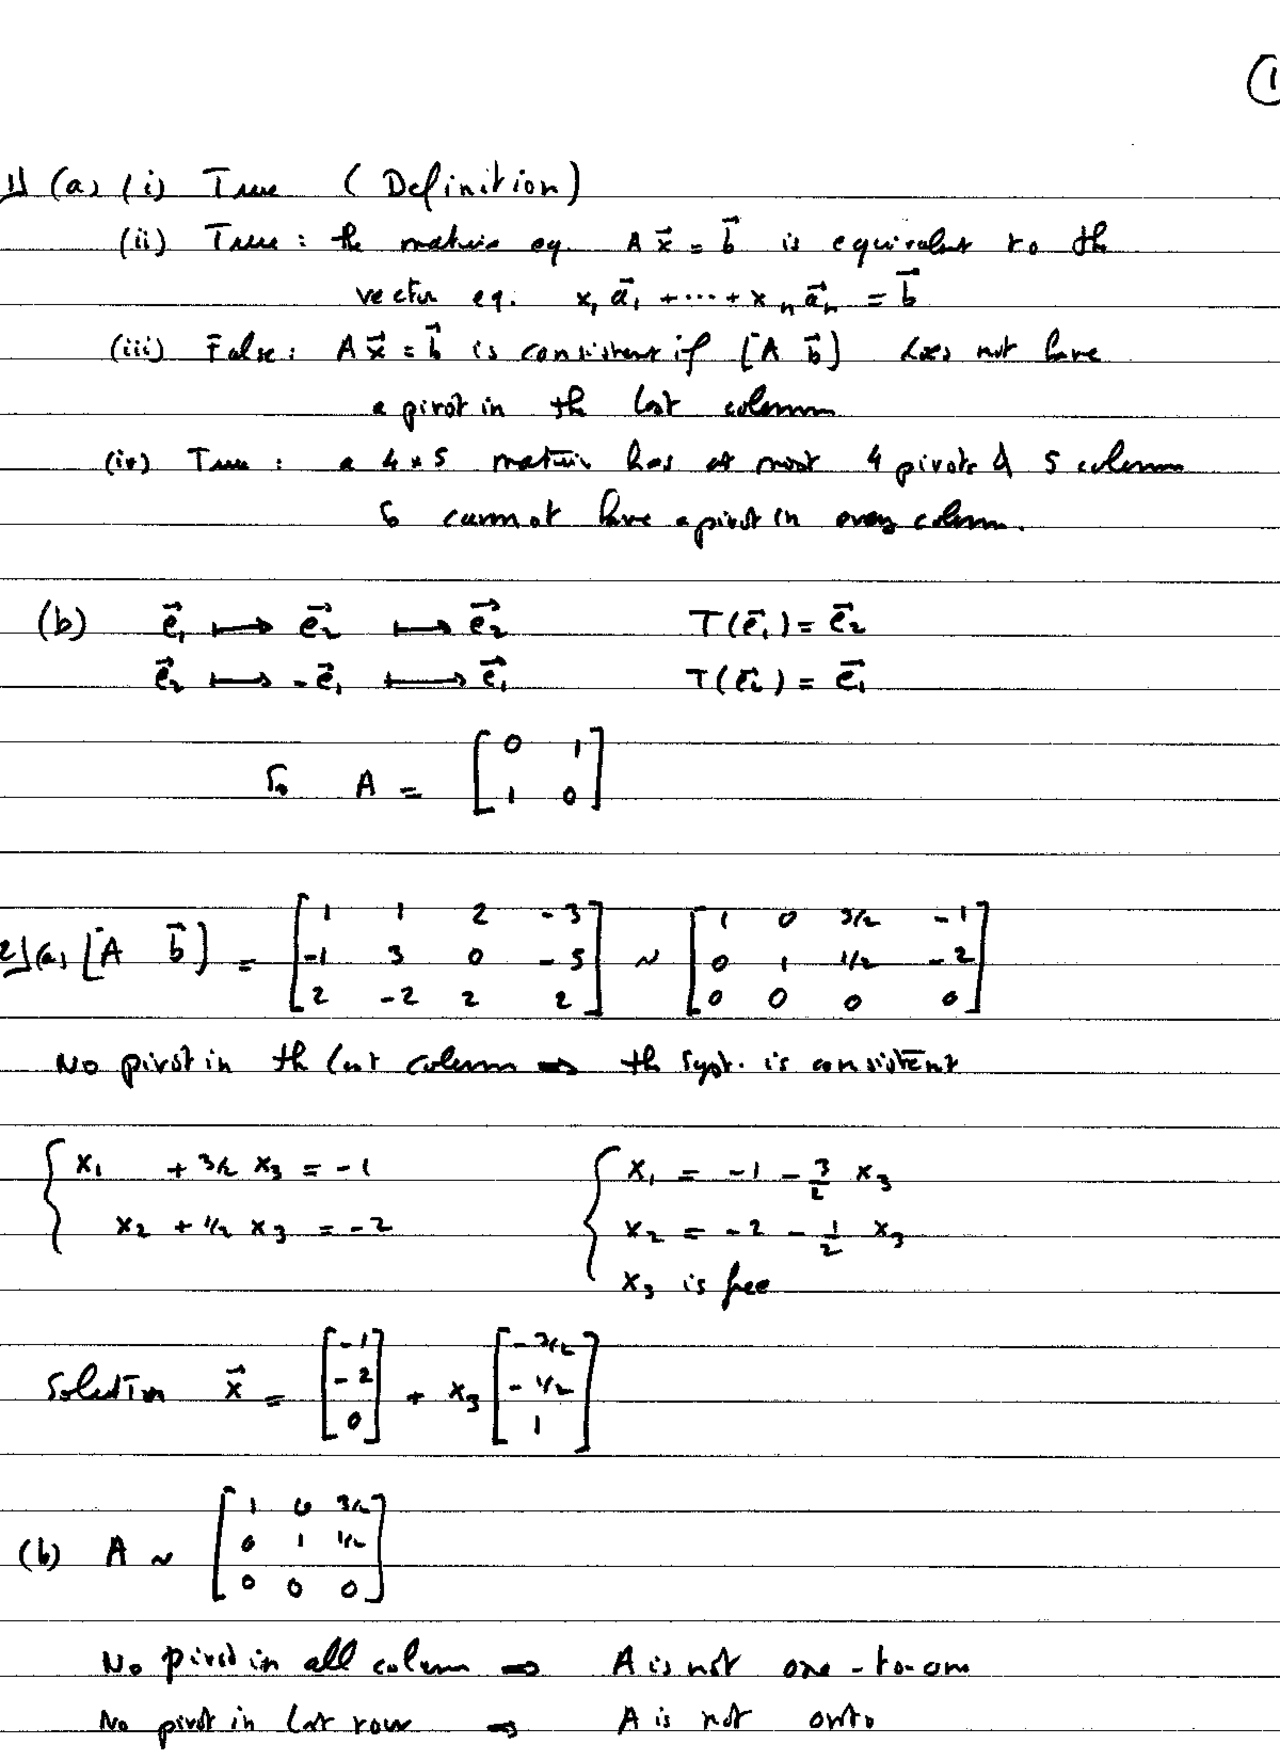 ①
1) (a) (i) True (Definition)
(ii) True : the matrix eq. A x⃗ = b⃗ is equivalent to the
vector eq. x₁ a⃗₁ + ... + xₙ a⃗ₙ = b⃗
(iii) False : A x⃗ = b⃗ is consistent if [A b⃗] does not have
a pivot in the last column
(iv) True : a 4 x 5 matrix has at most 4 pivots & 5 column
so cannot have a pivot in every column.
(b) e⃗₁ ↦ e⃗₂ ↦ e⃗₂ T(e⃗₁) = e⃗₂
e⃗₂ ↦ - e⃗₁ ↦ e⃗₁ T(e⃗₂) = e⃗₁
So A = [0 1
1 0]
2) (a) [A b⃗] = [1 1 2 -3 ~ [1 0 3/2 -1
-1 3 0 -5 0 1 1/2 -2
2 -2 2 2] 0 0 0 0]
No pivot in th last column ⇒ th syst. is consistent
{ x₁ + 3/2 x₃ = -1 { x₁ = -1 - 3/2 x₃
x₂ + 1/2 x₃ = -2 x₂ = -2 - 1/2 x₃
x₃ is free
Solution x⃗ = [-1 + x₃ [-3/2
-2 -1/2
0] 1]
(b) A ~ [1 0 3/2
0 1 1/2
0 0 0]
No pivot in all column ⇒ A is not one-to-one
No pivot in last row ⇒ A is not onto